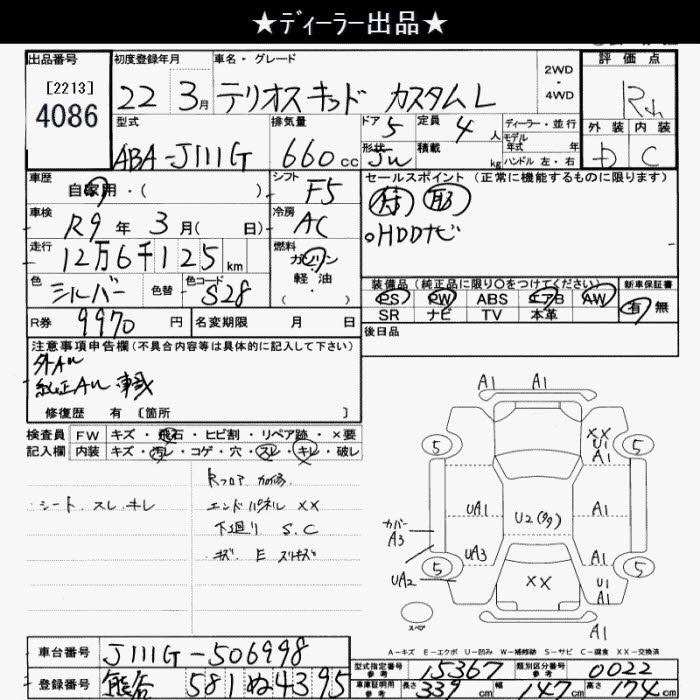 ★ﾃﾞｨｰﾗｰ出品★
出品番号
[2213]
4086
初度登録年月
22 3月
車名・グレード
テリオスキッド カスタムL
2WD
・
4WD
評価点
外装 内装
C
型式
ABA-J111G
排気量
660cc
ドア
5
形状
定員
4人
積載
kg
ディーラー・並行
モデル
年式 年
ハンドル 左・右
車歴
自家用・( )
シフト
F5
車検
R9年 3月( 日)
冷房
AC
走行
12万6千125km
燃料
ガソリン
軽油
( ・ )
色
シルバー
色替
色コード
S28
R券
9970円
名変期限 月 日
セールスポイント (正常に機能するものに限ります)
。HDDナビ
装備品 (純正品に限り〇をつけてください)
PS PW ABS エアB AW
SR ナビ TV 本革
新車保証書
有 無
後日品
注意事項申告欄(不具合内容等は具体的に記入して下さい)
外AW
純正AW 車載
修復歴 有 〔箇所 〕
検査員
記入欄
FW キズ・飛石・ヒビ割・リペア跡・×要
内装 キズ・汚レ・コゲ・穴・スレ・キレ・破レ
シート スレ キレ
Rフロア 加修
エンドパネル XX
下廻り S.C
キズ E スリキズ
A1 A1
5
XX
U1
A1
5
UA1
A1
U2(99)
カバー
A3
UA3
A1
UA2
5
XX
U1
A1
5
スペア
A1
A-キズ E-エクボ U-凹み W-補修跡 S-サビ C-腐食 XX-交換済
車台番号
J111G-506998
登録番号
熊谷 581 ぬ 4395
型式指定番号
参考
15367
類別区分番号
参考
0022
車庫証明用
参考
長さ 339cm 幅 147cm 高さ 174cm